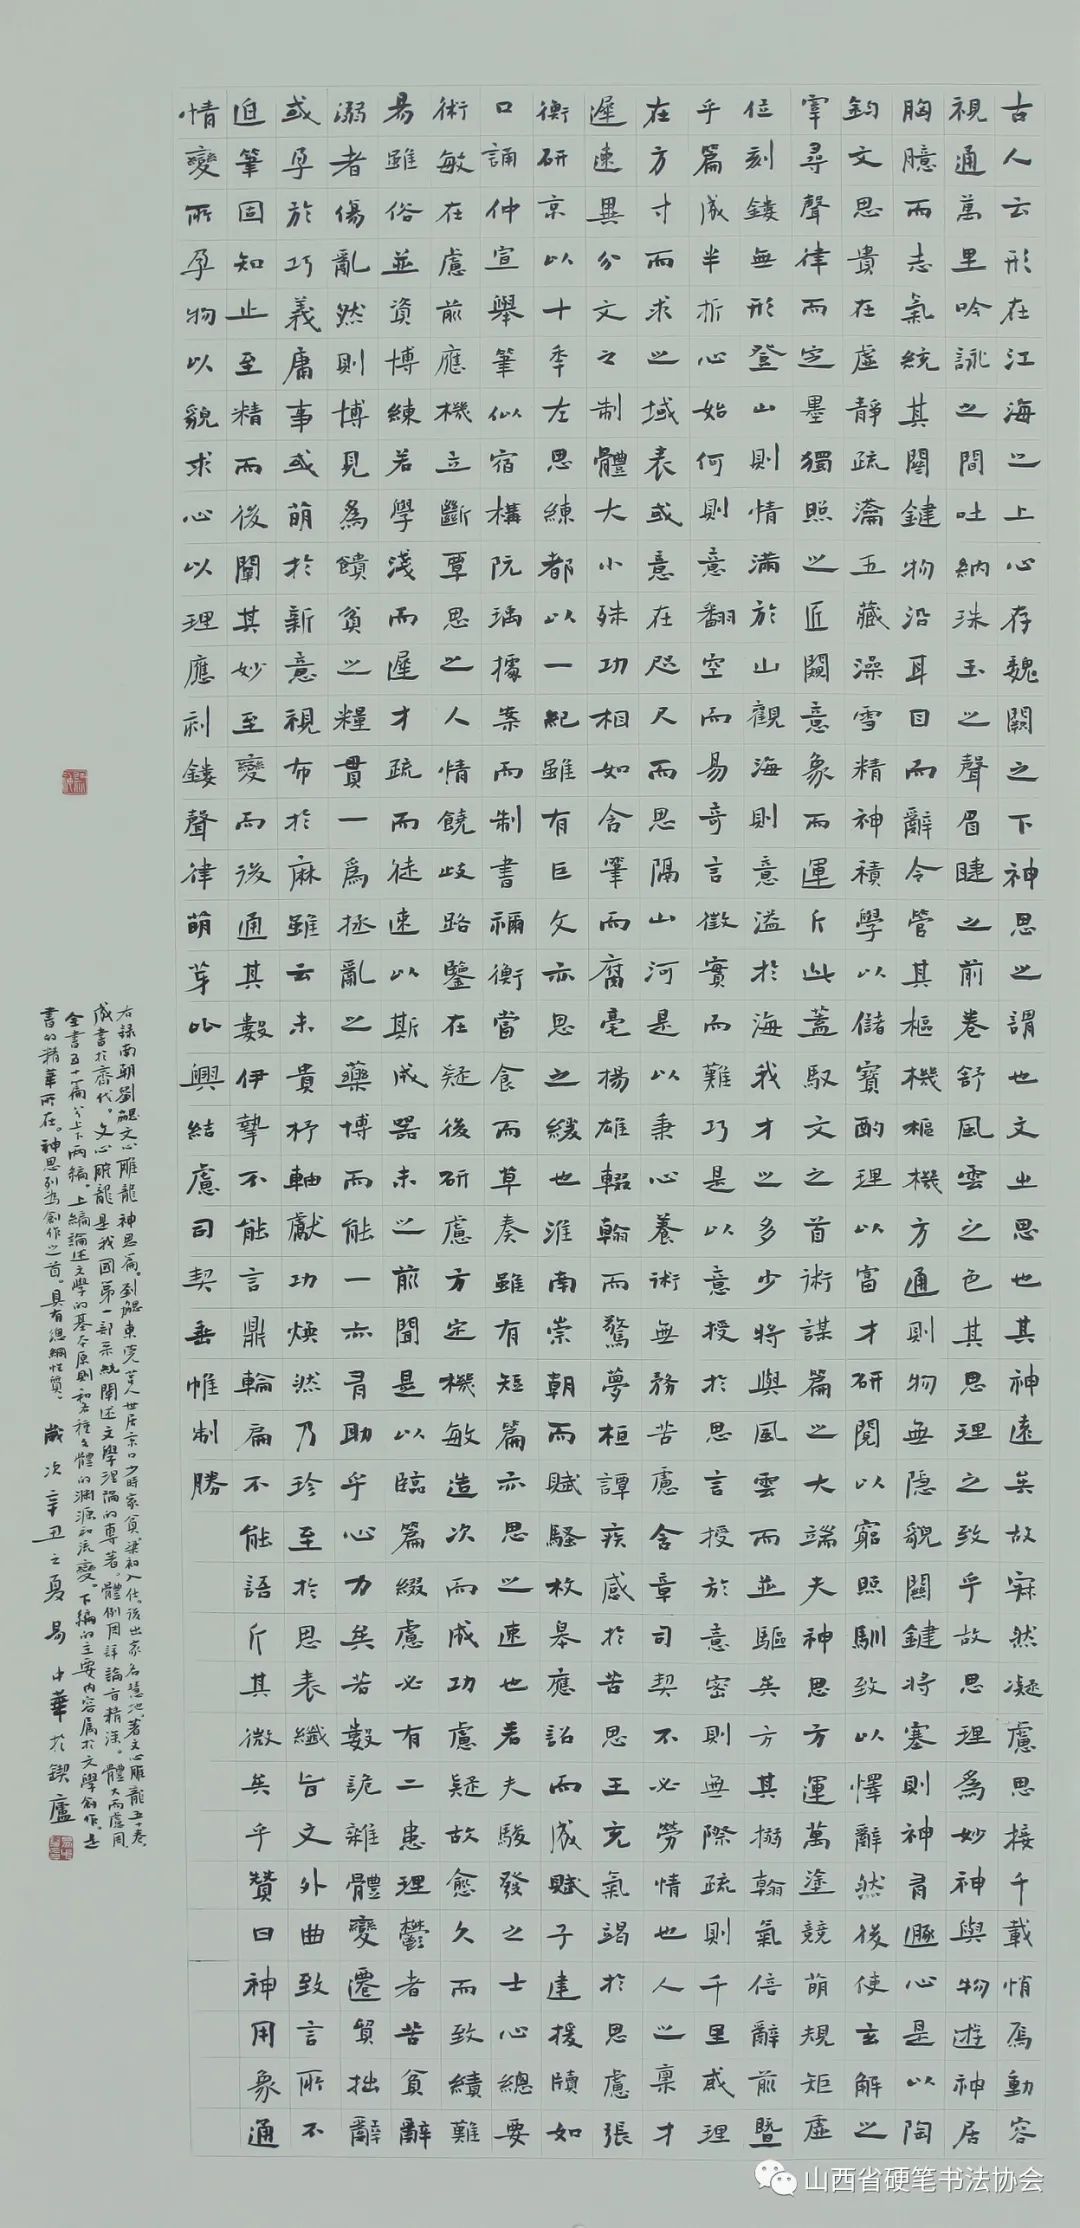 古人云形在江海之上心存魏闕之下神思之謂也文之思也其神遠矣故寂然凝慮思接千載悄焉動容
視通萬里吟詠之間吐納珠玉之聲眉睫之前卷舒風雲之色其思理之致乎故思理為妙神與物遊神居
胸臆而志氣統其關鍵物沿耳目而辭令管其樞機樞機方通則物無隱貌關鍵將塞則神有遯心是以陶
鈞文思貴在虛靜疏瀹五藏澡雪精神積學以儲寶酌理以富才研閱以窮照馴致以懌辭然後使玄解之
宰尋聲律而定墨獨照之匠闚意象而運斤此蓋馭文之首術謀篇之大端夫神思方運萬塗競萌規矩虛
位刻鏤無形登山則情滿於山觀海則意溢於海我才之多少將與風雲而並驅矣方其搦翰氣倍辭前暨
乎篇成半折心始何則意翻空而易奇言徵實而難巧是以意授於思言授於意密則無際疏則千里或理
在方寸而求之域表或意在咫尺而思隔山河是以秉心養術無務苦慮含章司契不必勞情也人之稟才
遲速異分文之制體大小殊功相如含筆而腐毫揚雄輟翰而驚夢桓譚疾感於苦思王充氣竭於思慮張
衡研京以十年左思練都以一紀雖有巨文亦思之緩也淮南崇朝而賦騷枚皋應詔而成賦子建援牘如
口誦仲宣舉筆似宿構阮瑀據案而制書禰衡當食而草奏雖有短篇亦思之速也若夫駿發之士心總要
術敏在慮前應機立斷覃思之人情饒歧路鑒在疑後研慮方定機敏造次而成功慮疑故愈久而致績難
易雖俗並資博練若學淺而遲才疏而徒速以斯成器未之前聞是以臨篇綴慮必有二患理鬱者苦貧辭
溺者傷亂然則博見為饋貧之糧貫一為拯亂之藥博而能一亦有助乎心力矣若數詭雜體變遷質拙辭
或孕於巧義庸事或萌於新意視布於麻雖云未貴杼軸獻功煥然乃珍至於思表纖旨文外曲致言所不
追筆固知止至精而後闡其妙至變而後通其數伊摯不能言鼎輪扁不能語斤其微矣乎贊曰神用象通
情變所孕物以貌求心以理應刻鏤聲律萌芽比興結慮司契垂帷制勝
右錄南朝劉勰文心雕龍神思篇。劉勰東莞莒人世居京口少時家貧梁初入仕。後出家名慧地。著文心雕龍五十卷。
成書於齊代。文心雕龍是我國第一部系統闡述文學理論的專著。體例周詳論旨精深。體大而慮周
全書五十篇分上下兩編。上編論述文學的基本原則和各種文體的淵源和流變。下編的主要內容屬於文學創作。是
書的精華所在。神思列為創作之首。具有總綱性質。歲次辛丑之夏易中華於鍥廬
山西省硬笔书法协会